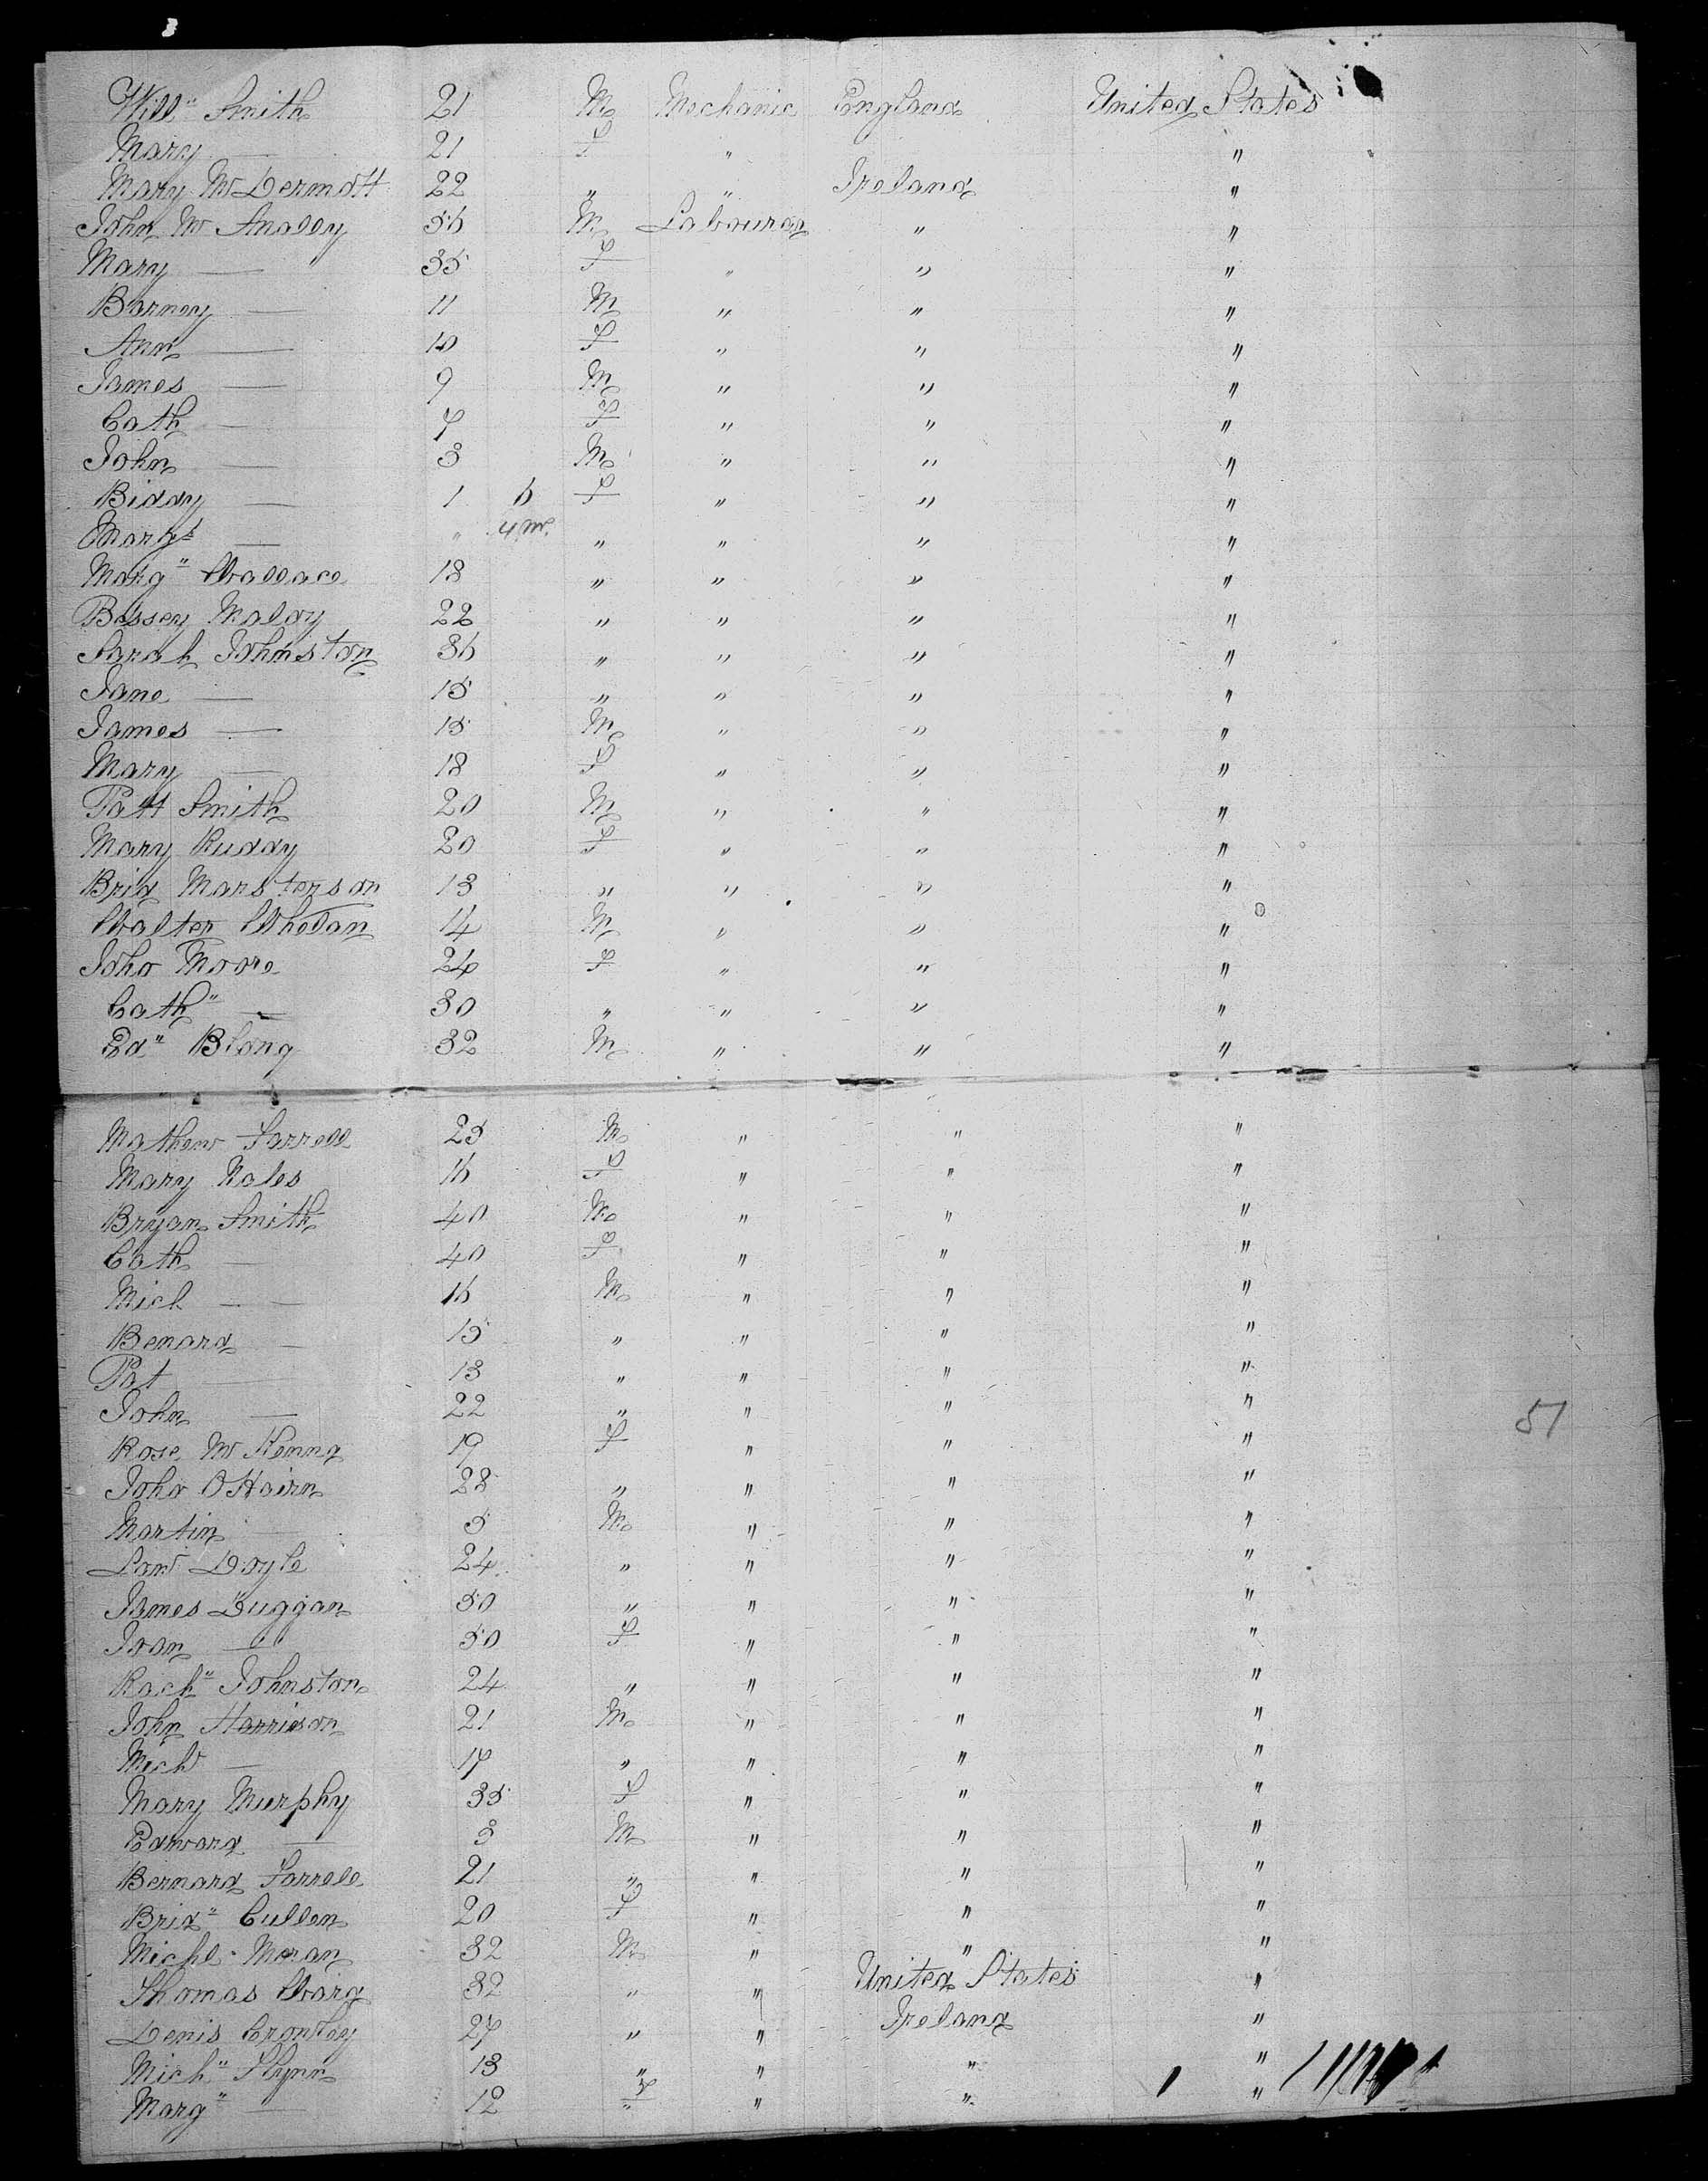 Will" Smith 21 M Mechanic England United States
Mary — 21 F " "
Mary McDermott 22 " " Ireland "
John Mc Anally 36 M Labourer " "
Mary — 35 F " " "
Barney — 11 M " " "
Ann — 10 F " " "
James — 9 M " " "
Cath — 7 F " " "
John — 3 M " " "
Biddy — 1 6 F " " "
Margt — " 4 m " " " "
Marg" Wallace 18 " " " "
Bessey Maloy 22 " " " "
Sarah Johnston 36 " " " "
Jane — 15 " " " "
James — 15 M " " "
Mary — 18 F " " "
Patt Smith 20 M " " "
Mary Ruddy 20 F " " "
Brid Marsterson 13 " " " "
Walter Whelan 14 M " " "
Joha Moore 24 F " " "
Cath" — 30 " " " "
Ed" Blong 32 M " " "
Mathew Farrell 25 M " " "
Mary Nales 16 F " " "
Bryan Smith 40 M " " "
Cath — 40 F " " "
Mich — 16 M " " "
Benard — 15 " " " "
Pat — 13 " " " "
John — 22 " " " "
51
Rose Mc Kenna 19 F " " "
Joha O Hairn 28 " " " "
Martin — 5 M " " "
Law Doyle 24 " " " "
James Duggan 50 " " " "
Joan — 50 F " " "
Rach" Johnston 24 " " " "
John Harrison 21 M " " "
Michl — 17 " " " "
Mary Murphy 35 F " " "
Edward — 3 M " " "
Bernard Farrell 21 " " " "
Brid" Cullen 20 F " " "
Michl Moran 32 M " " "
Thomas Ward 32 " " United States "
Denis Crowley 27 " " Ireland "
Mich" Flynn 13 " " " "
Marg" — 12 F " " "